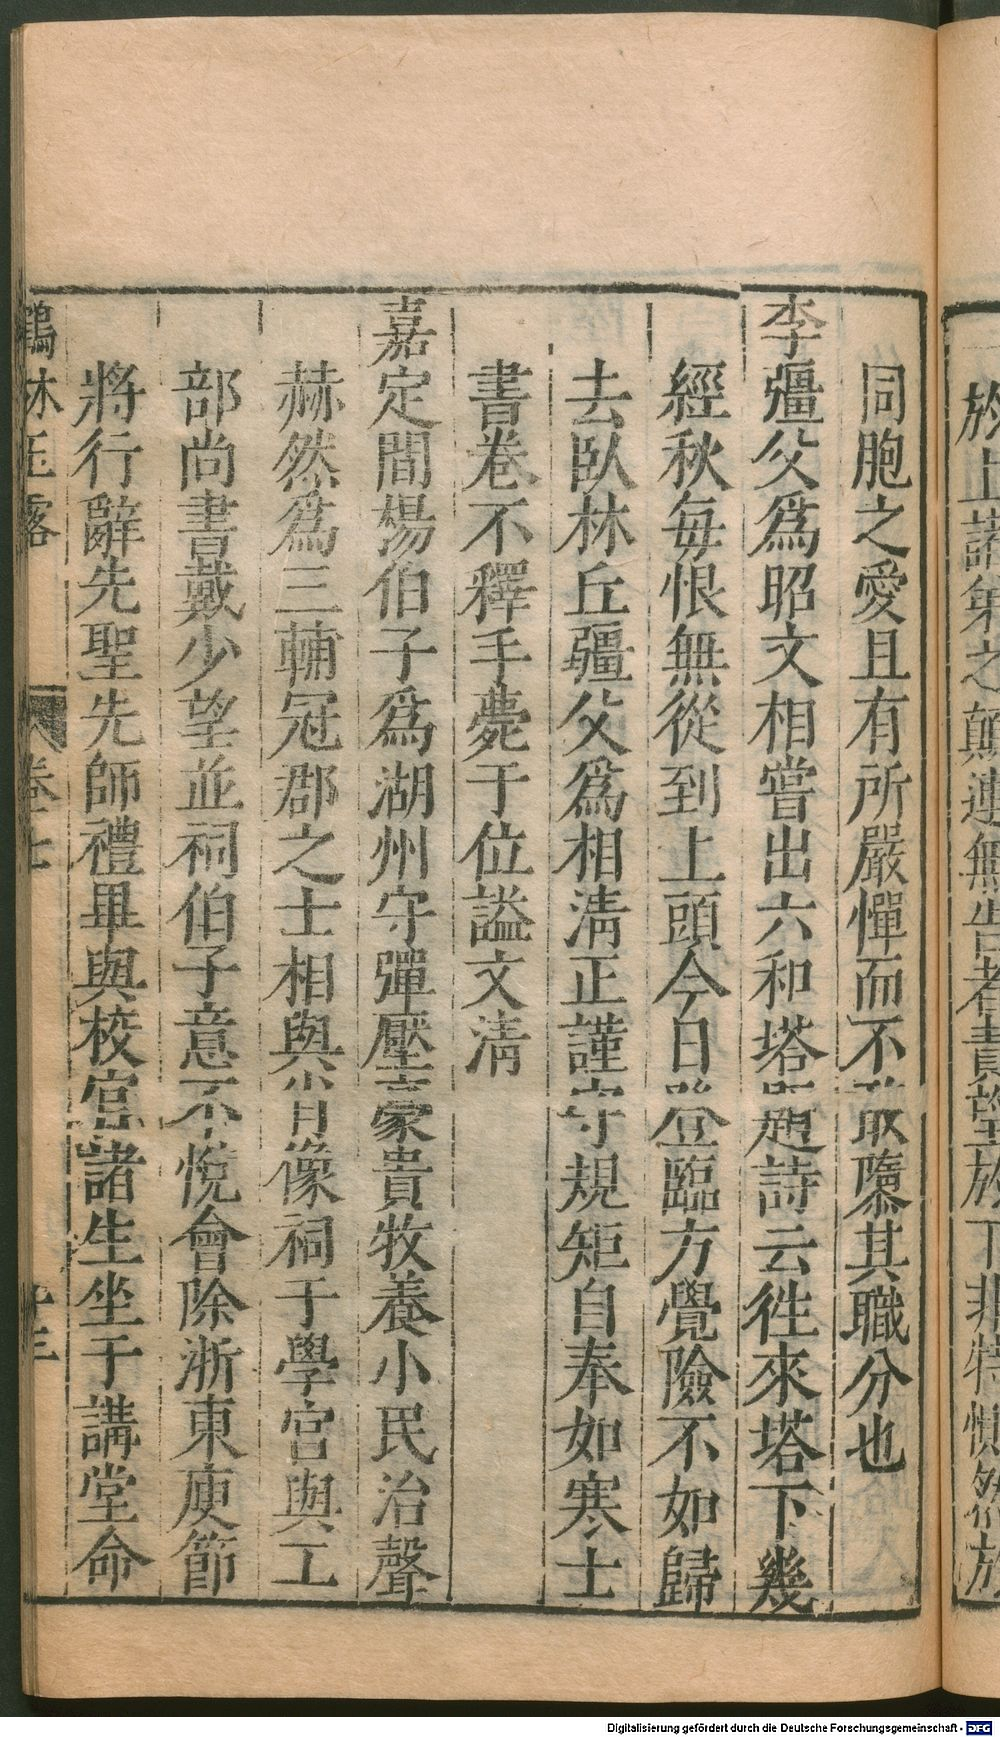 於止諸弟之顛連無告者責望於下非特慎然於
同胞之愛且有所嚴憚而不敢隳其職分也
李彊父爲昭文相嘗出六和塔題詩云徃來塔下幾
經秋每恨無從到上頭今日登臨方覺險不如歸
去臥林丘疆父爲相淸正謹守規矩自奉如寒士
書卷不釋手薨于位謚文淸
嘉定間楊伯子爲湖州守彈壓豪貴牧養小民治聲
赫然爲三輔冠郡之士相與肖像祠于學宮與工
部尚書戴少望並祠伯子意不悅會除浙東庾節
將行辭先聖先師禮畢與校官諸生坐于講堂命
鶴林玉露 卷七 十三
Digitalisierung gefördert durch die Deutsche Forschungsgemeinschaft - DFG